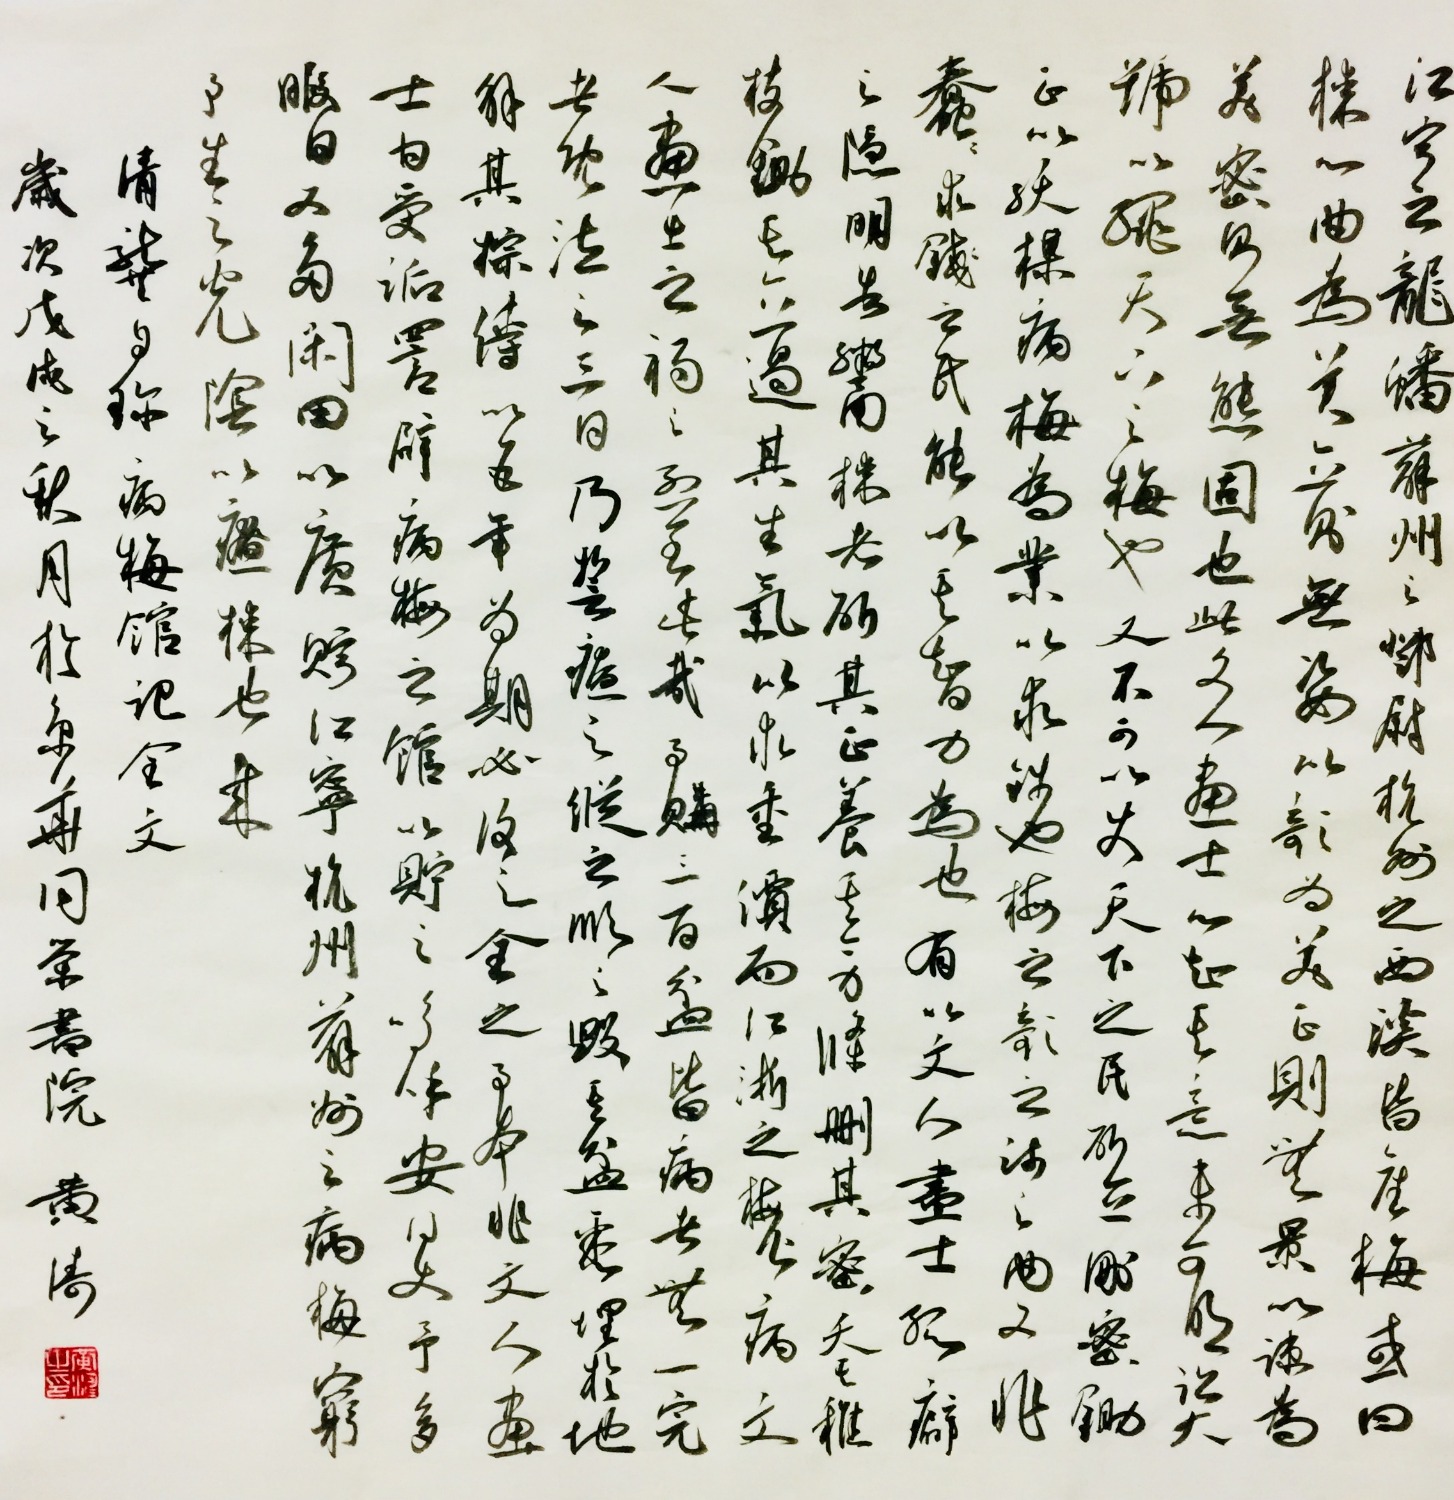 江宁之龍蟠蘇州之鄧尉杭州之西溪皆產梅或曰
梅以曲為美直則無姿以欹為美正則無景以疎為
美密則無態固也此文人畫士心知其意未可明詔大
號以繩天下之梅也又不可以使天下之民斫直刪密鋤
正以殀梅病梅為業以求錢也梅之欹之疏之曲又非
蠢蠢求錢之民能以其智力為也有以文人畫士孤癖
之隱明告鬻梅者斫其正養其旁條刪其密夭其稚
枝鋤其直遏其生氣以求重價而江浙之梅皆病文
人畫士之禍之烈至此哉予購三百盆皆病者無一完
者既泣之三日乃誓療之縱之順之毀其盆悉埋於地
解其棕縛以五年為期必復之全之予本非文人畫
士甘受詬詈辟病梅之館以貯之嗚呼安得使予多
暇日又多閑田以廣貯江寧杭州蘇州之病梅窮
予生之光陰以療梅也哉
清龔自珍病梅館記全文
歲次戊戌之秋月於京華同榮書院 黃濤